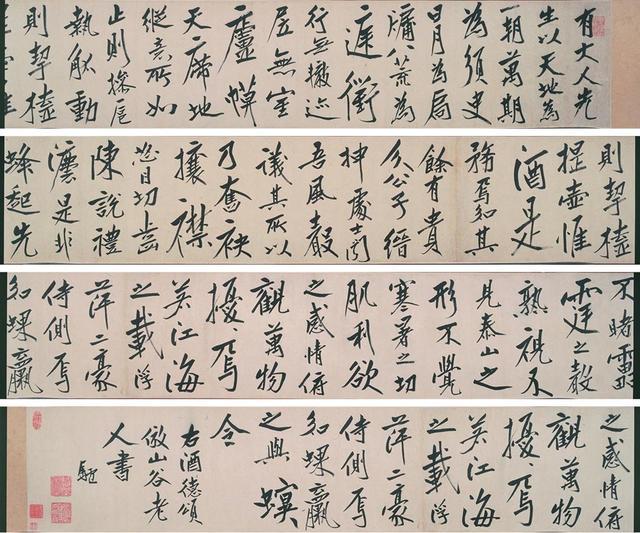 有大人先
生以天地為
一朝萬期
為須臾
日月為扃
牖八荒為
庭衢
行無轍迹
居無室
廬幙
天席地
縱意所如
止則操巵
執觚動
則挈榼
則挈榼
提壺惟
酒是
務焉知其
餘有貴
介公子縉
紳處士聞
吾風聲
議其所以
乃奮袂
攘襟
怒目切齒
陳說禮
灋是非
蜂起先
不睹雷
霆之聲
熟視不
見泰山之
形不覺
寒暑之切
肌利欲
之感情俯
觀萬物
擾〻焉
若江海
之載浮
萍二豪
侍側焉
如蜾蠃
之感情俯
觀萬物
擾〻焉
若江海
之載浮
萍二豪
侍側焉
如蜾蠃
之與螟
令
右酒德頌
倣山谷老
人書